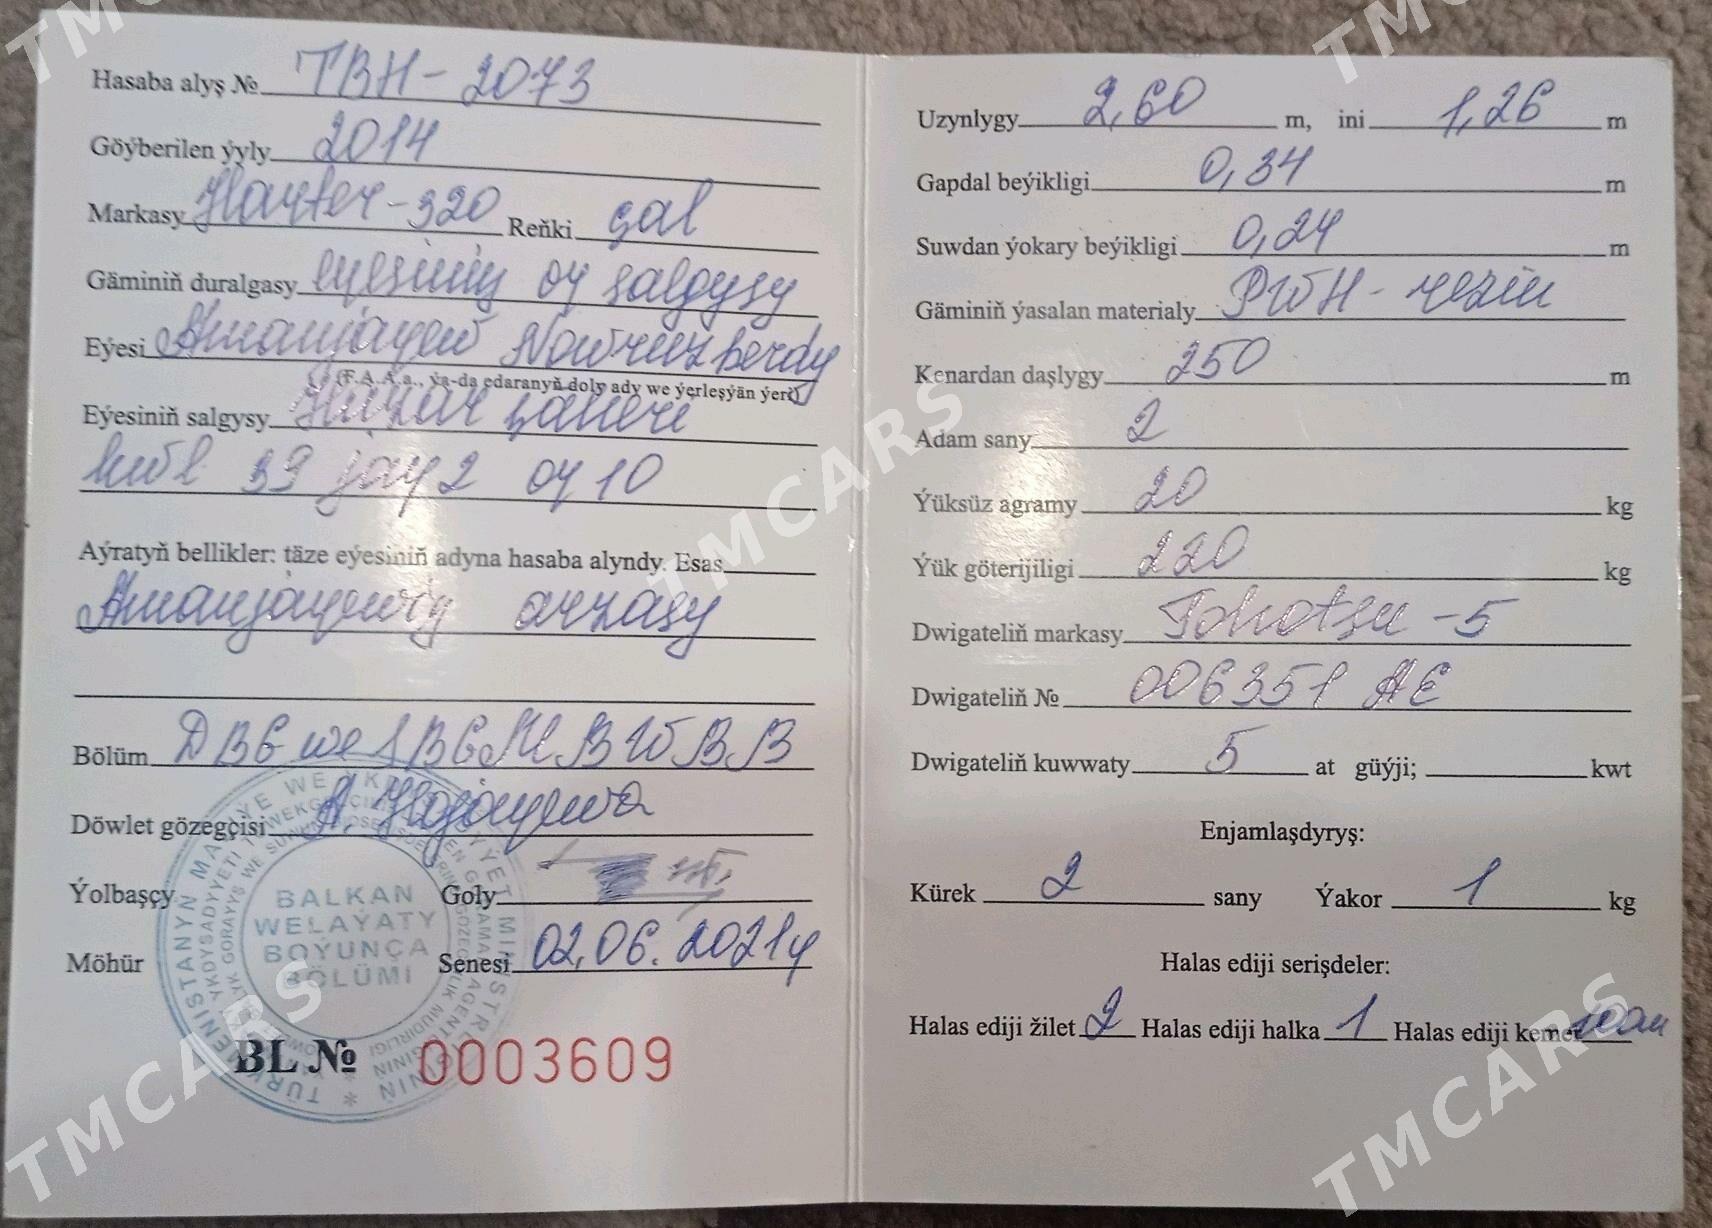 Hasaba alyş № TBH-2073
Göýberilen ýyly 2014
Markasy Hayter-320 Reňki çal
Gäminiň duralgasy eýesiniň öý salgysy
Eýesi Amanjaýew Nowruzberdy
(F.A.A.a., ýa-da edaranyň doly ady we ýerleşýän ýeri)
Eýesiniň salgysy Hazar şäheri
kwl 39 jaý 2 öý 10
Aýratyň bellikler: täze eýesiniň adyna hasaba alyndy. Esas
Amanjaýewiň arzasy
Bölüm
Döwlet gözegçisi A. Hojaýewa
Ýolbaşçy Goly
Möhür Senesi 02.06.2021ý
BALKAN
WELAÝATY
BOÝUNÇA
BÖLÜMI
BL № 0003609
Uzynlygy 2,60 m, ini 1,26 m
Gapdal beýikligi 0,34 m
Suwdan ýokary beýikligi 0,24 m
Gäminiň ýasalan materialy PWH-rezin
Kenardan daşlygy 250 m
Adam sany 2
Ýüksüz agramy 20 kg
Ýük göterijiligi 220 kg
Dwigateliň markasy Tohotsu-5
Dwigateliň № 006351 AE
Dwigateliň kuwwaty 5 at güýji; kwt
Enjamlaşdyryş:
Kürek 2 sany Ýakor 1 kg
Halas ediji serişdeler:
Halas ediji žilet 2 Halas ediji halka 1 Halas ediji kemer
TMCARS
TMCARS
TMCARS
TMCARS
TMCARS